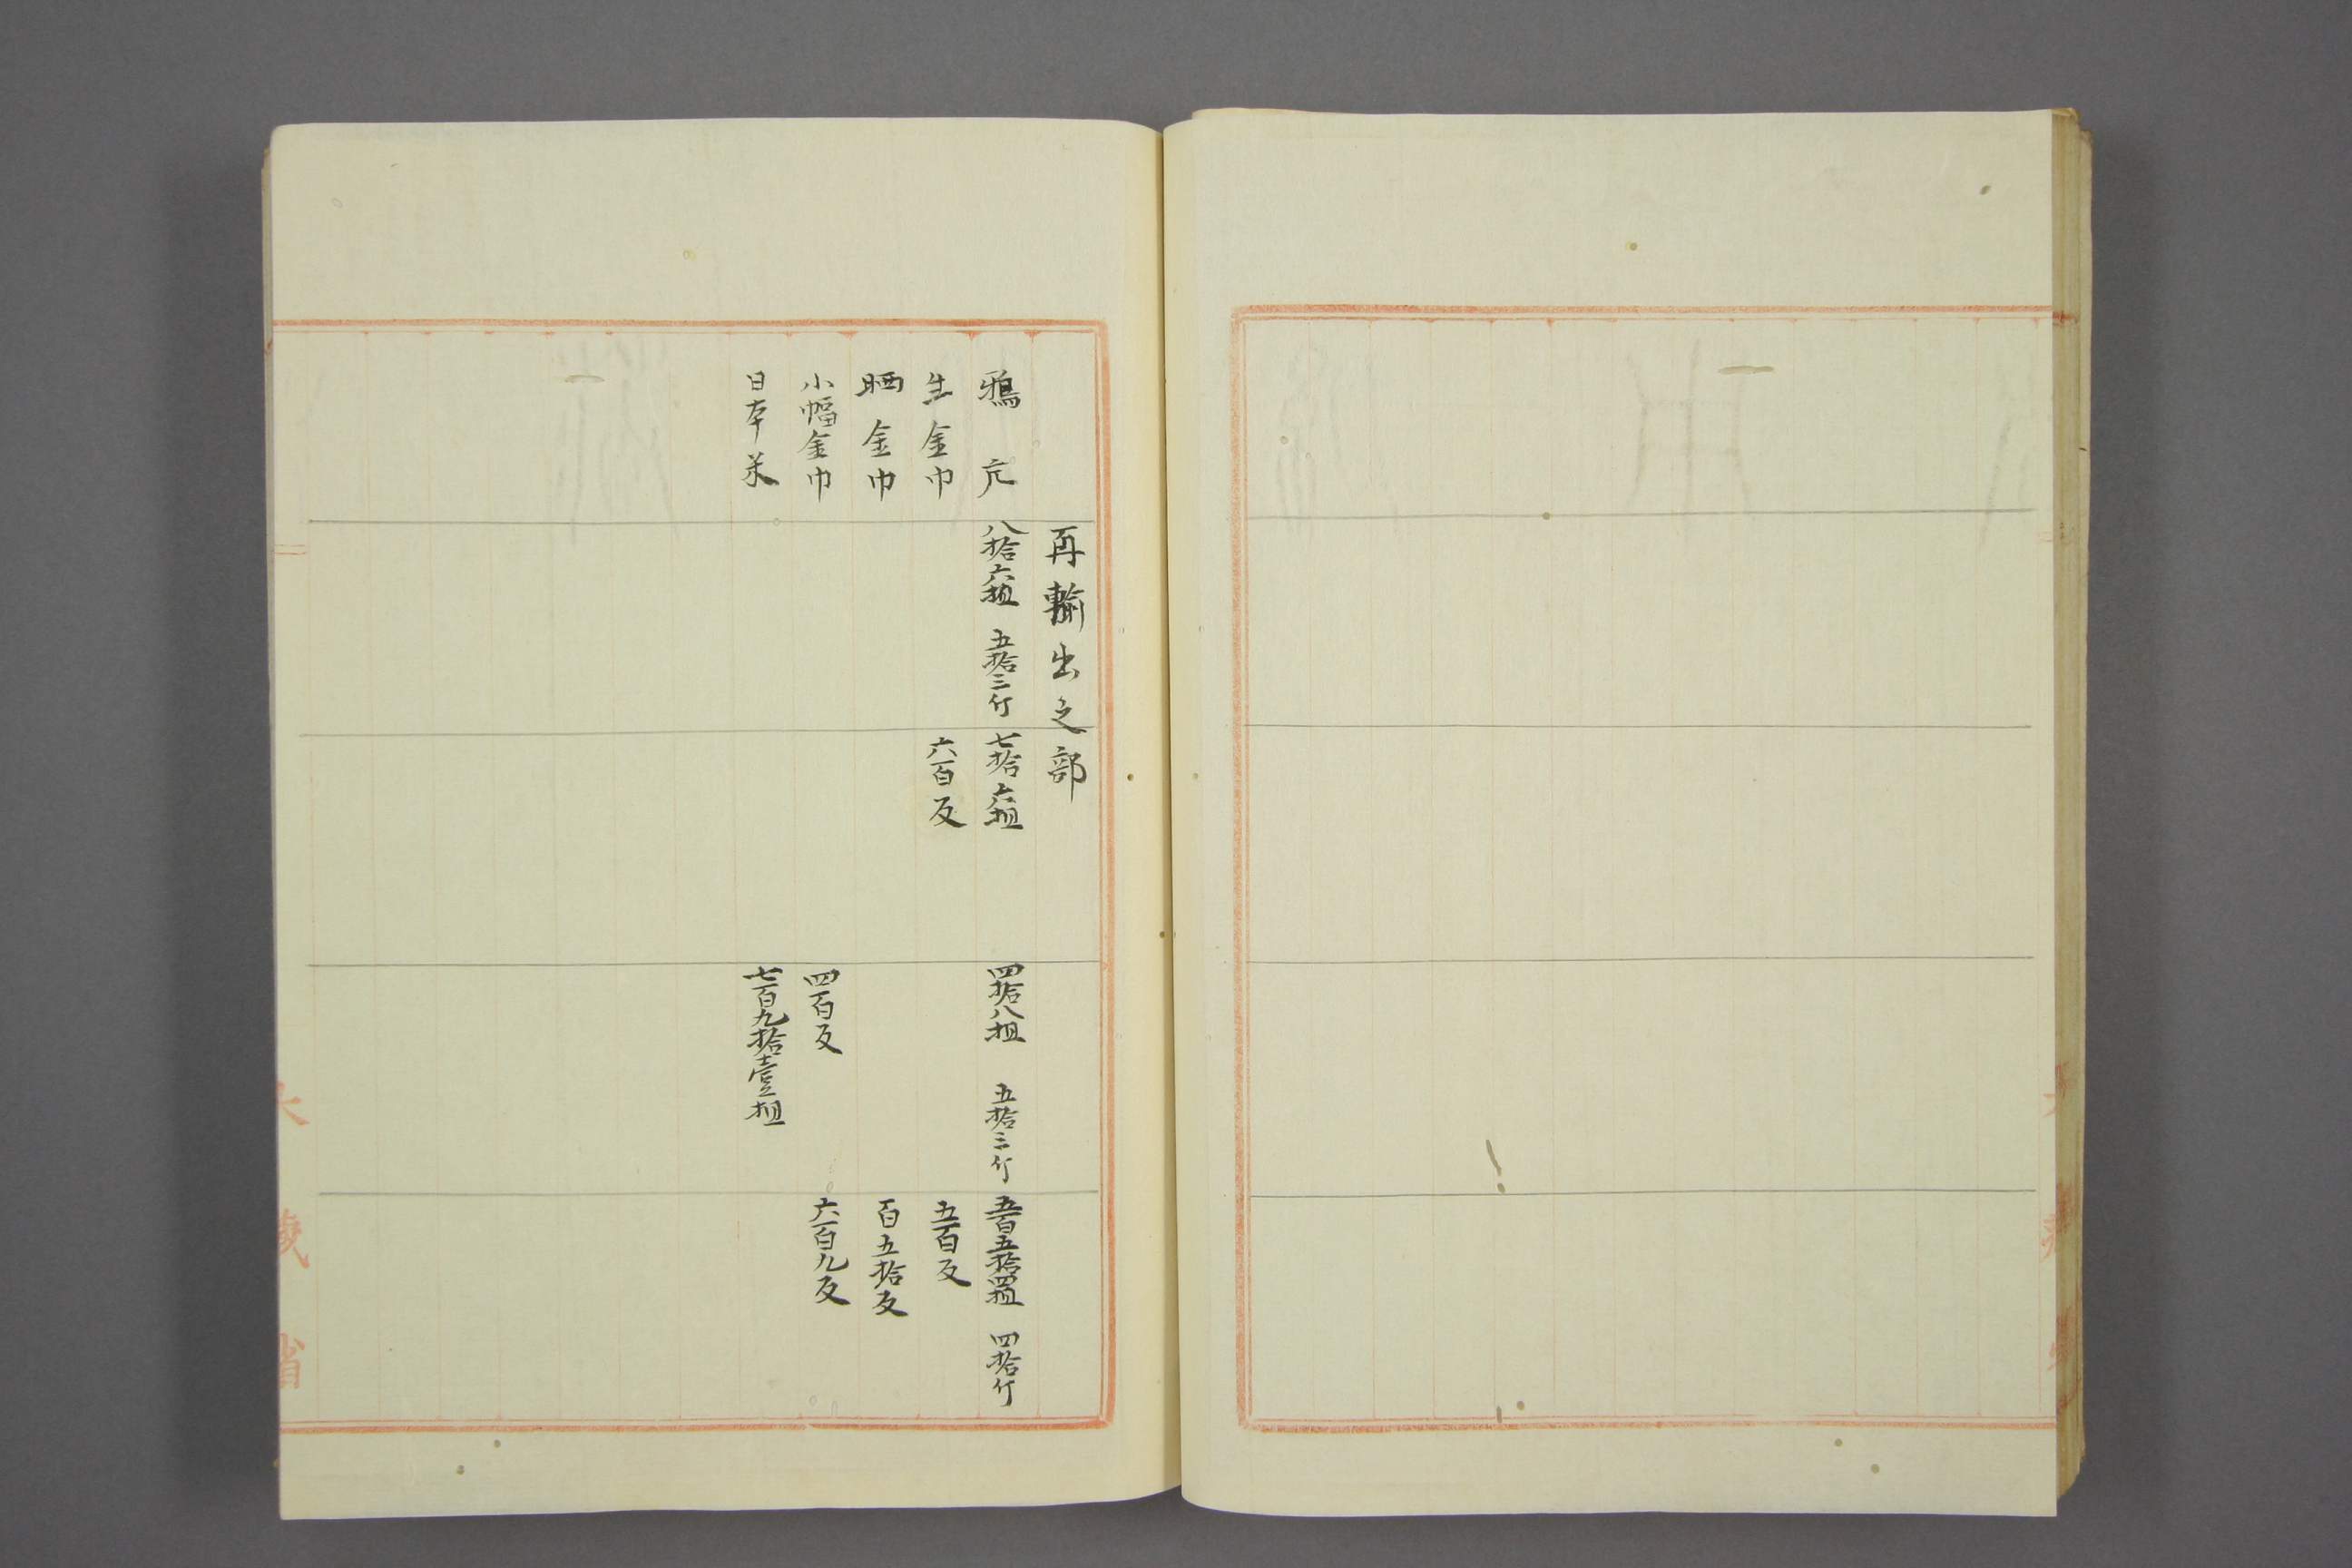 再輸出之部
鴉片 八拾六担 五拾三斤 七拾六担 四拾八担 五拾三斤 五百五拾四担 四拾斤
生金巾 六百反 五百反
晒金巾 百五拾反
小幅金巾 四百反 六百九反
日本米 七百九拾壹担
大藏省